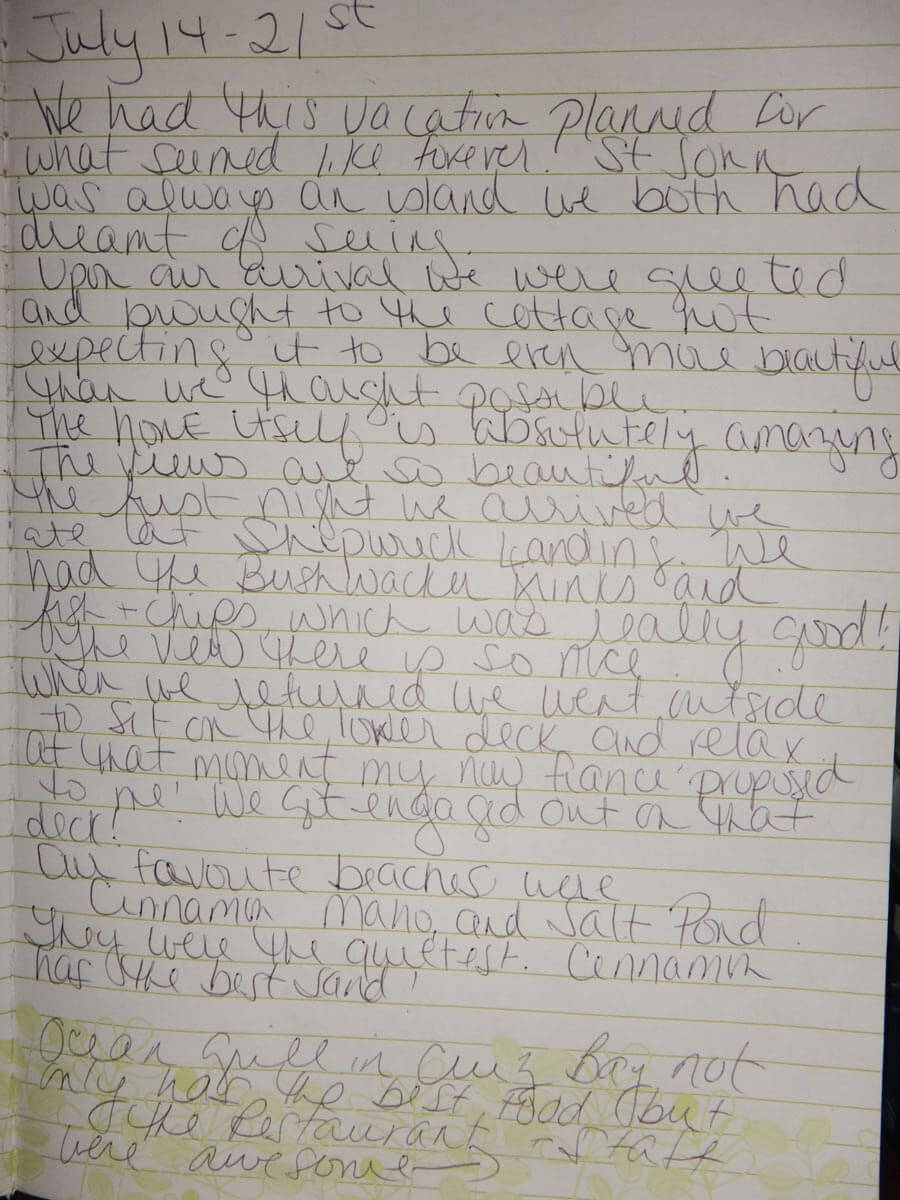 July 14-21st
We had this vacation planned for
what seemed like forever. St John
was always an island we both had
dreamt of seeing.
Upon our arrival we were greeted
and brought to the cottage not
expecting it to be even more beautiful
than we thought possible.
The home itself is absolutely amazing
The views are so beautiful.
The first night we arrived we
ate at Shipwreck Landing. We
had the Bushwacker drinks and
fish + chips which was really good!!
The view there is so nice.
When we returned we went outside
to sit on the lower deck and relax
at that moment my now fiance proposed
to me! We got engaged out on that
deck!
Our favoute beaches were
Cinnamon Maho, and Salt Pond.
They were the quietest. Cinnamon
has the best sand!
Ocean Grill in Cruz Bay not
only has the best food but
the Restaurant staff
were awesome →